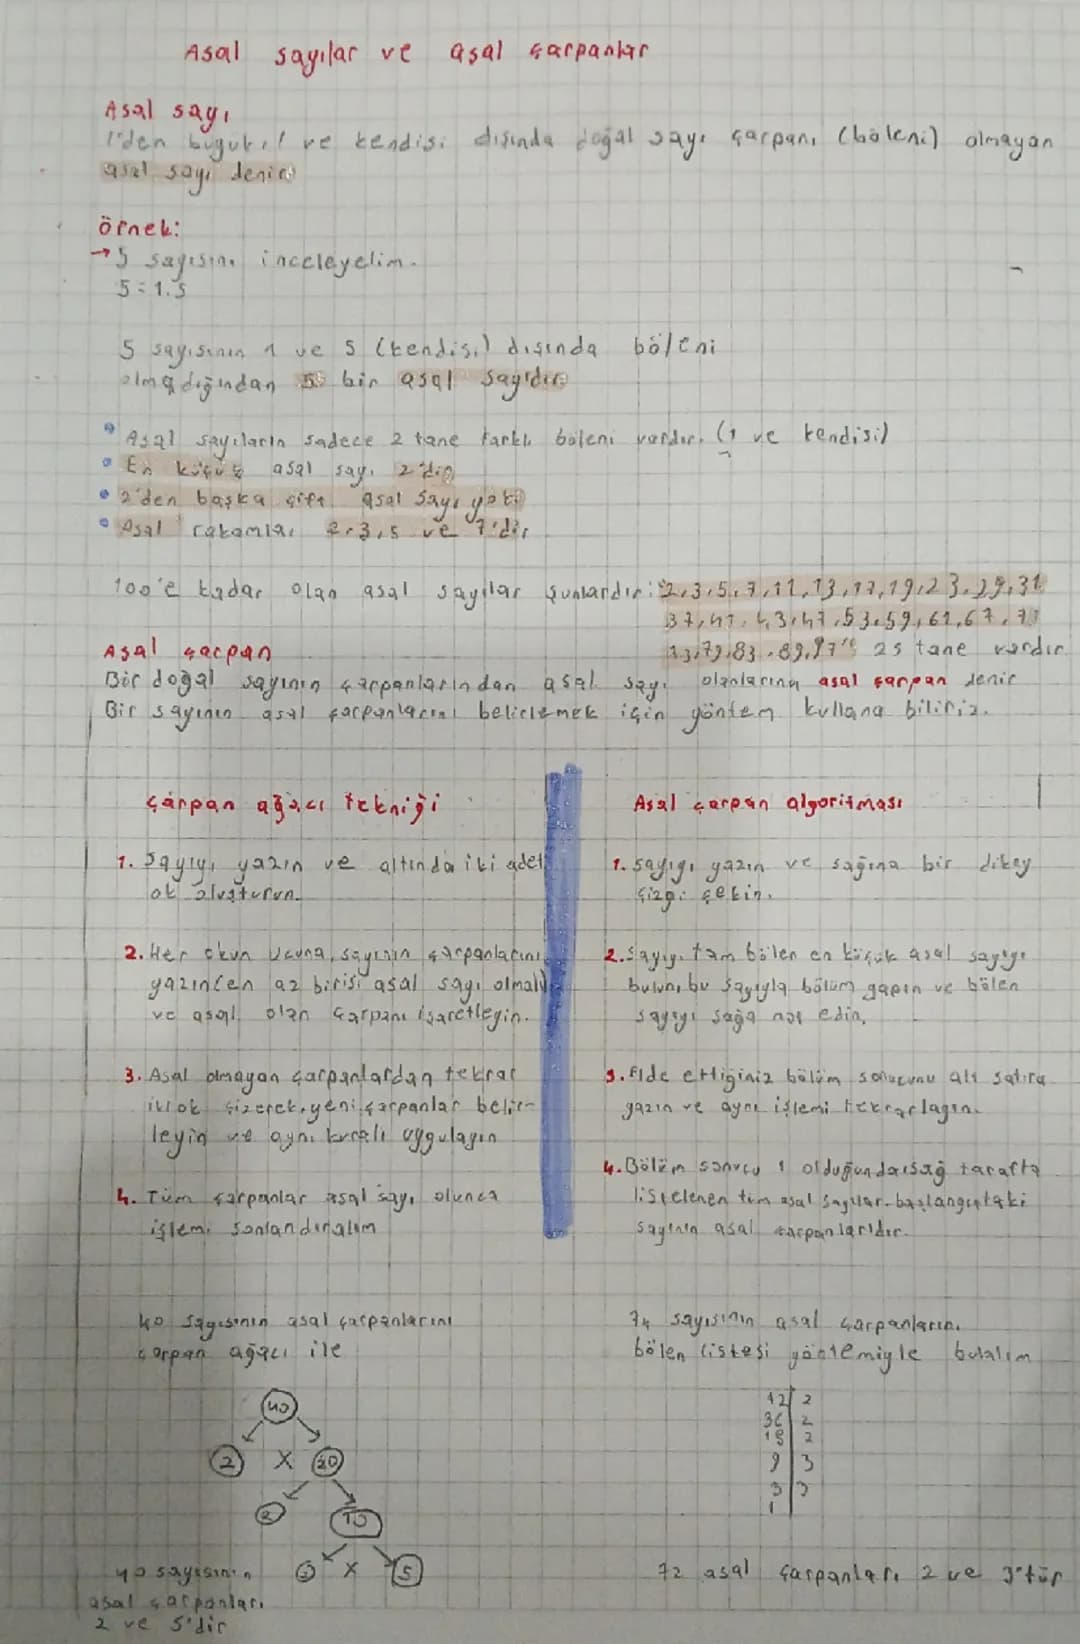 Asal sayılar ve asal çarpanlar
Asal sayı
1'den büyük 1 ve kendisi dışında doğal sayı çarpanı (böleni) olmayan
asal sayı denir
örnek:
→ 5 sayısını inceleyelim.
5=1.5
5 sayısının 1 ve 5 (kendisi) dışında böleni
olmadığından 5 bir asal sayıdır
• Asal sayıların sadece 2 tane farklı böleni vardır. (1 ve kendisi)
• En küçük asal sayı 2'dir
• 2'den başka çift asal sayı yok
• Asal rakamlar 2,3,5 ve 7'dir
100'e kadar olan asal sayılar şunlardır: 2,3,5,7,11,13,17,19,23,29,31
37,41,43,47,53,59,61,67,71
73,79,83,89,97" 25 tane vardır
Asal çarpan
Bir doğal sayının çarpanlarından asal sayı olanlarına asal çarpan denir
Bir sayının asal çarpanlarını belirlemek için yöntem kullana biliriz.
Çarpan ağacı tekniği
1. Sayıyı yazın ve altında iki adet
ok oluşturun.
2. Her okun ucuna, sayının çarpanlarını
yazın(en az birisi asal sayı olmalı)
ve asal olan çarpanı işaretleyin.
3. Asal olmayan çarpanlardan tekrar
iki ok çizerek, yeni çarpanlar belir-
leyin ve aynı kuralı uygulayın
4. Tüm çarpanlar asal sayı olunca
işlemi sonlandıralım
40 sayısının asal çarpanlarını
çarpan ağacı ile
40
2 X 20
2 10
2 X 5
40 sayısının
asal çarpanları
2 ve 5'dir
Asal çarpan algoritması
1. sayıyı yazın ve sağına bir dikey
çizgi çekin.
2. Sayıyı tam bölen en küçük asal sayıyı
bulun, bu sayıyla bölüm yapın ve bölen
sayıyı sağa not edin.
3. Elde ettiğiniz bölüm sonucunu alt satıra
yazın ve aynı işlemi tekrarlayın.
4. Bölüm sonucu 1 olduğunda sağ tarafta
listelenen tüm asal sayılar başlangıçtaki
sayının asal çarpanlarıdır.
74 sayısının asal çarpanlarını
bölen listesi yöntemiyle bulalım
72 2
36 2
18 2
9 3
3 3
1
72 asal çarpanları 2 ve 3'tür